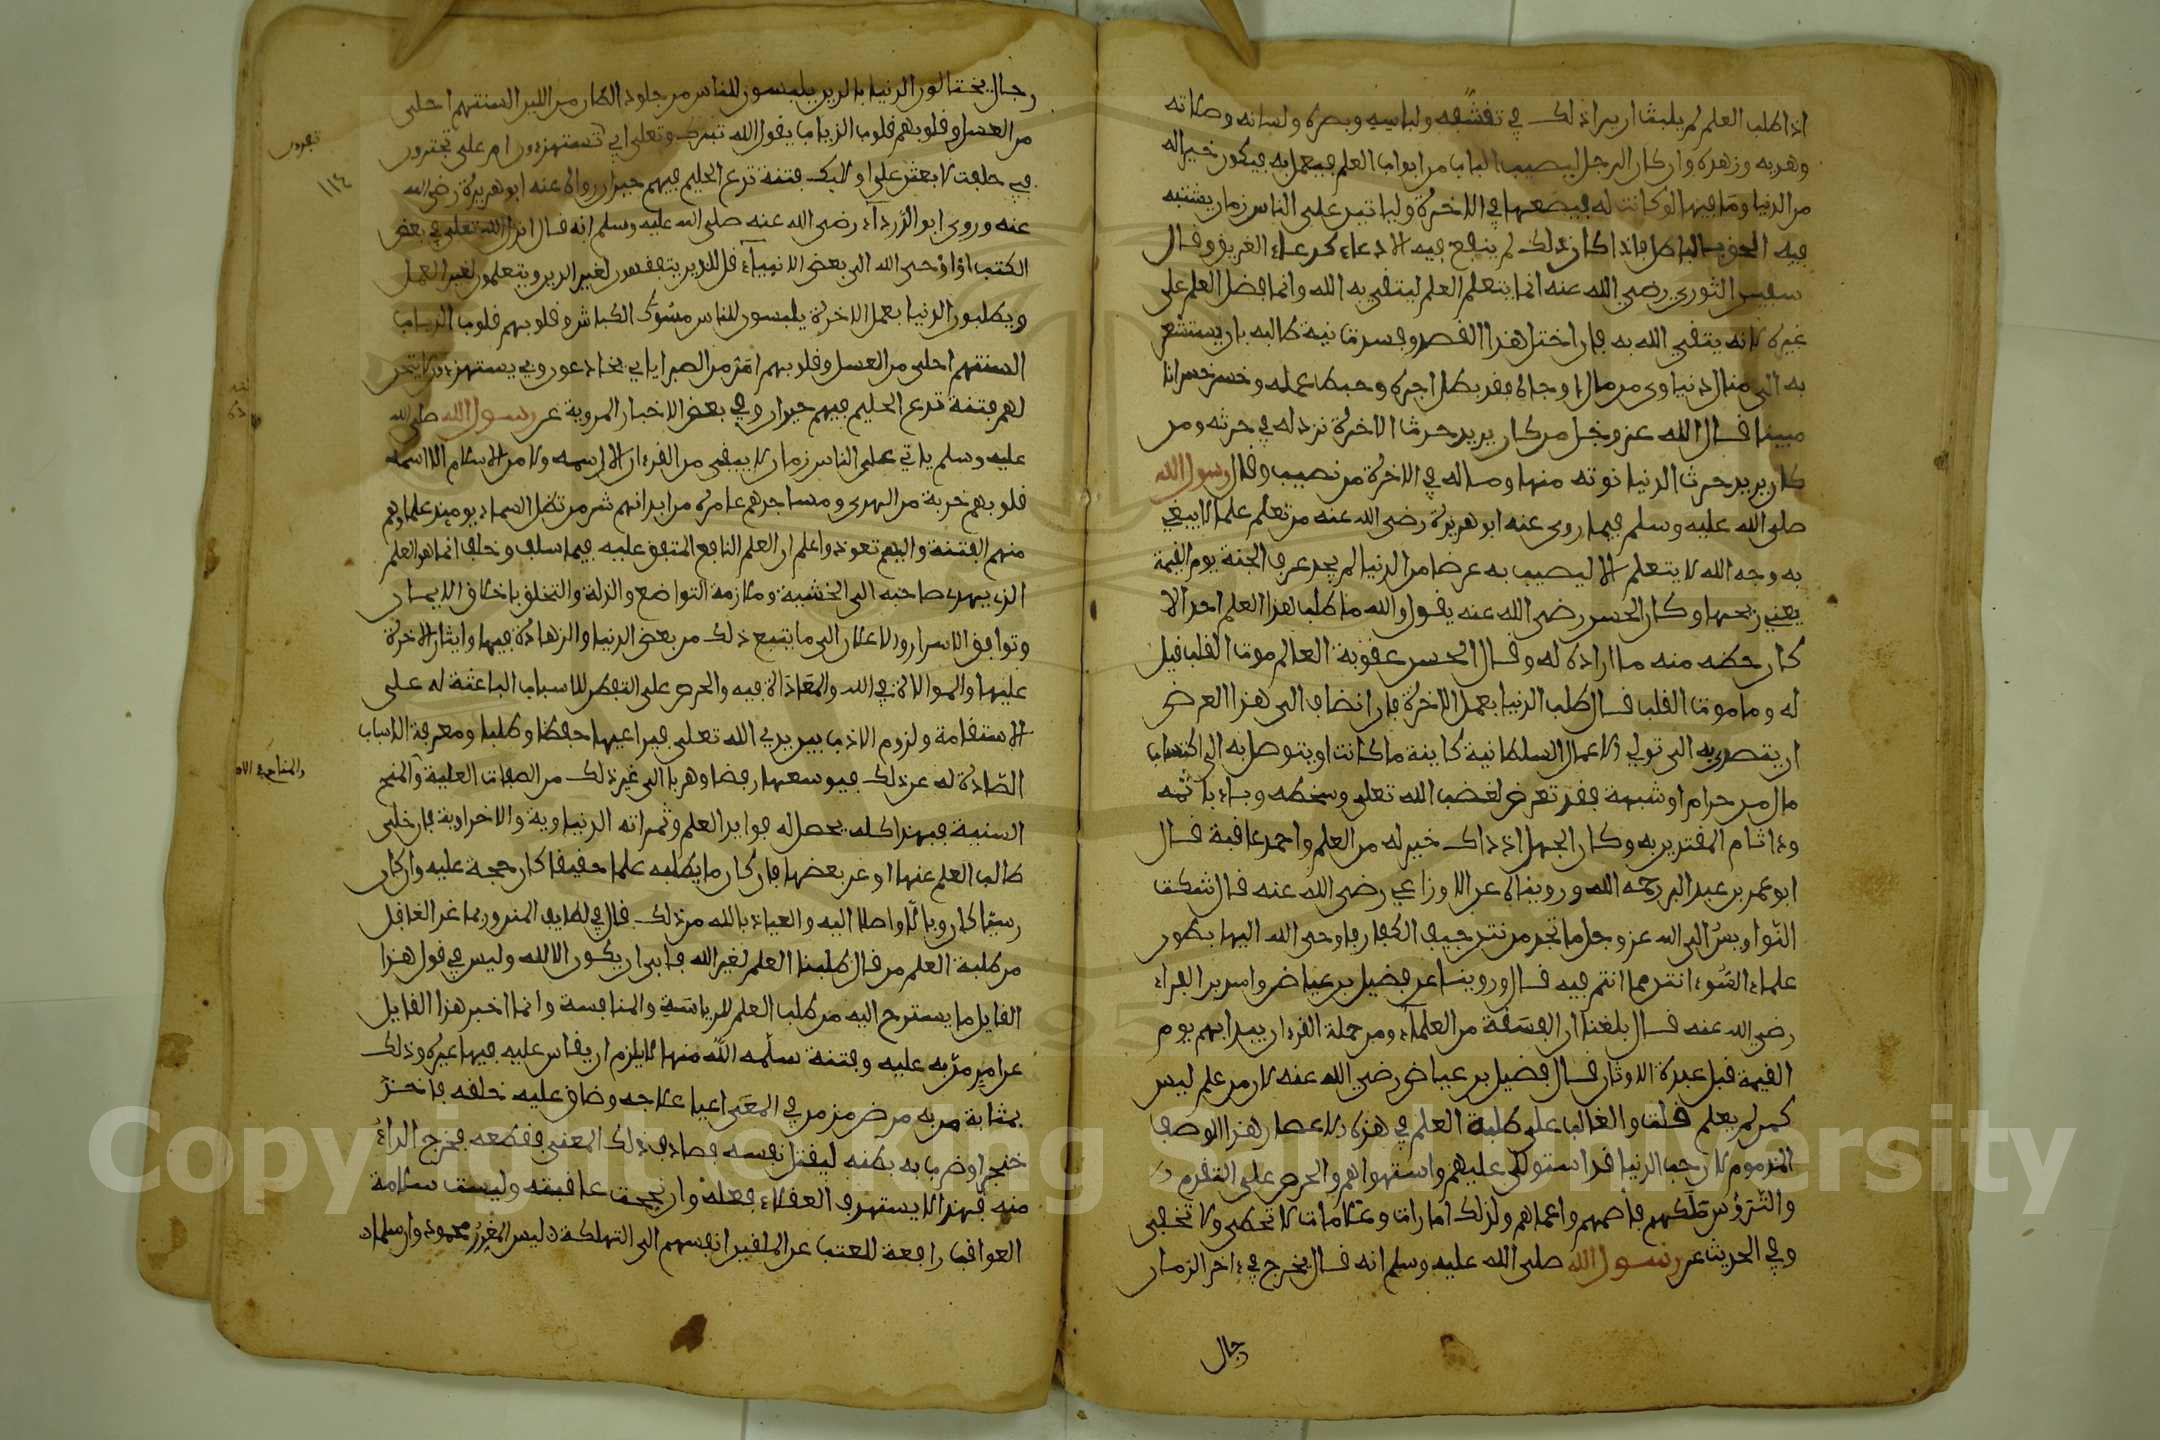 اذا طلب العلم لم يلبث ان يرا ذلك في تخشعه ولباسه وبصره ولسانه وصلاته
وهديه وزهده وان كان الرجل ليصيب الباب من ابواب العلم فيعمل به فيكون خيرا له
من الدنيا وما فيها لو كانت له فيضعها في الاخرة ولياتين على الناس زمان يشتبه
فيه الحق والباطل فاذا كان ذلك لم ينفع فيه الا دعاء كدعاء الغريق وقال
سفين الثوري رضي الله عنه انما يتعلم العلم ليتقى به الله وانما فضل العلم على
غيره لانه يتقى الله به فان اختل هذا القصد وفسدت نية طالبه بان يستشعر
به الى منال دنياوي من مال او جاه فقد بطل اجره وحبط عمله وخسر خسرانا
مبينا قال الله عز وجل من كان يريد حرث الاخرة نزد له في حرثه ومن
كان يريد حرث الدنيا نوته منها وما له في الاخرة من نصيب وقال رسول الله
صلى الله عليه وسلم فيما روى عنه ابو هريرة رضي الله عنه من تعلم علما لا يبتغي
به وجه الله لا يتعلمه الا ليصيب به عرضا من الدنيا لم يجد عرف الجنة يوم القيمة
يعني ريحها وكان الحسن رضي الله عنه يقول والله ما طلب هذا العلم احد الا
كان حظه منه ما اراده له وقال الحسن عقوبة العالم موت القلب قيل
له وما موت القلب قال طلب الدنيا بعمل الاخرة فان انضاف الى هذا الغرض
ان يتصدى به الى تولي الاعمال السلطانية كاينة ما كانت او يتوصل به الى اكتساب
مال من حرام او شبهة فقد تعرض لغضب الله تعلى وسخطه وباء باثمه
وءاثام المقتدين به وكان الجهل اذ ذاك خير له من العلم واحمد عاقبة قال
ابو عمر بن عبد البر رحمه الله وروينا عن الاوزاعي رضي الله عنه قال شكت
النواويس الى الله عز وجل ما تجد من نتن جيف الكفار فاوحى الله اليها بطون
علماء السوء انتن مما انتم فيه قال وروينا عن فضيل بن عياض واسد بن الفرات
رضي الله عنه قال بلغنا ان الفسقة من العلماء ومن حملة القرءان يبدا بهم يوم
القيمة قبل عبدة الاوثان قال فضيل بن عياض رضي الله عنه لان من علم ليس
كمن لم يعلم قلت والغالب على طلبة العلم في هذه الاعصار هذا الوصف
المذموم لان حب الدنيا قد استولى عليهم واستهواهم والحرص على التقدم
والترؤس ملكهم فاصمهم واعماهم ولذلك امارات وعلامات لا تحصى ولا تخفى
وفي الحديث عن رسول الله صلى الله عليه وسلم انه قال يخرج في ءاخر الزمان
رجال
رجال يختالون الدنيا بالدين يلبسون للناس من جلود الضان من اللين السنتهم احلى
من العسل وقلوبهم قلوب الذياب يقول الله تبرك وتعلى ابي تستهزءون ام علي تجترون
فبي حلفت لابعثن على اوليك فتنة تدع الحليم فيهم حيران رواه عنه ابو هريرة رضي الله
عنه وروى ابو الدرداء رضي الله عنه صلى الله عليه وسلم انه قال انزل الله تعلى في بعض
الكتب او اوحى الله الى بعض الانبياء قل للذين يتفقهون لغير الدين ويتعلمون لغير العمل
ويطلبون الدنيا بعمل الاخرة يلبسون للناس مسوك الكباش وقلوبهم قلوب الذياب
السنتهم احلى من العسل وقلوبهم امر من الصبر اياي يخادعون وبي يستهزءون لاتيحن
لهم فتنة تدع الحليم فيهم حيران وفي بعض الاخبار المروية عن رسول الله صلى الله
عليه وسلم ياتي على الناس زمان لا يبقى من القرءان الا رسمه ولا من الاسلام الا اسمه
قلوبهم خربة من الهدى ومساجدهم عامرة من ابدانهم شر من تظل السماء يوميذ علماوهم
منهم الفتنة واليهم تعود واعلم ان العلم النافع المتفق عليه فيما سلف وخلف انما هو العلم
الذي يهدي صاحبه الى الخشية وملازمة التواضع والذلة والتخلق باخلاق الايمان
وتوافق الاسرار والاعلان الى ما يتبع ذلك من بغض الدنيا والزهادة فيها وايثار الاخرة
عليها والموالاة في الله والمعاداة فيه والحرص على التفطن للاسباب الباعثة له على
الاستقامة ولزوم الادب بين يدي الله تعلى فيراعيها حفظا وطلبا ومعرفة الاسباب
الصادة له عن ذلك فيوسعها رفضا وهربا الى غير ذلك من الصفات العلية والمنح
السنية فبهذا كله يحصل له فوايد العلم وثمراته الدنياوية والاخراوية فان خلي
طالب العلم عنها او عن بعضها فان كان ما يطلبه علما حقيقا كان حجة عليه وان كان
رسميا كان وبالا واصلا اليه والعياذ بالله من ذلك قال في لطايف المنن وربما غر الغافل
من طلبة العلم من قال طلبنا العلم لغير الله فابى ان يكون الا لله وليس في قول هذا
القايل ما يستروح اليه من طلب العلم للرياسة والمنافسة وانما اخبر هذا القايل
عن امر من به عليه وفتنة سلمه الله منها لا يلزم ان يقاس عليه فيها غيره وذلك
بمثابة من به مرض مزمن في المعى اعيا علاجه وضاق عليه خلقه فاخذ
خنجرا وضرب به بطنه ليقتل نفسه فصادف ذلك المعنى فقطعه فخرج الداء
منه فهذا لا يستهدف العقلاء فعله وان نجحت عاقبته وليست سلامة
العواقب رافعة للعتب عن الملقين انفسهم الى التهلكة وليس المغرر محمودا وان سلما
١١٤
Copyright © King Saud University